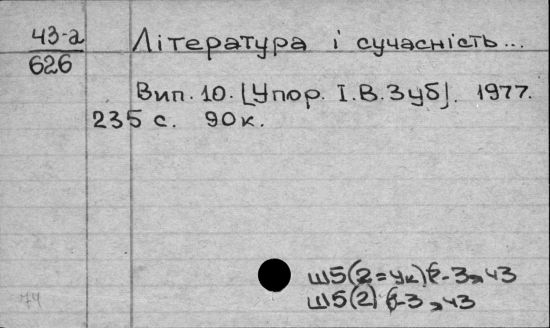 43-а
626
Література і сучасність...
Вип. 10. [Упор. І.В.Зуб]. 1977.
235 с. 90к.
Ш5(2=Ук)
Ш5(2)
74